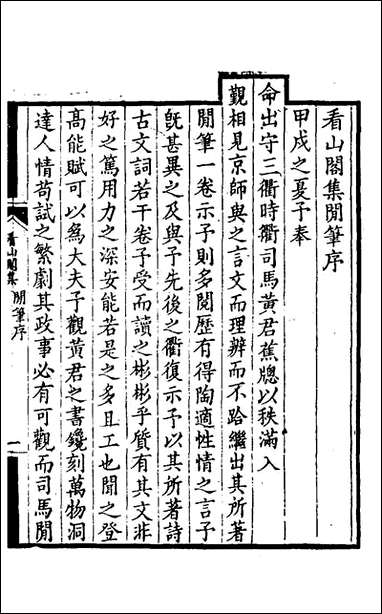 看山閣集閒筆序
甲戌之夏予奉
命出守三衢時衢司馬黃君蕉牕以秩滿入
覲相見京師與之言文而理辨而不跲繼出其所著
閒筆一卷示予則多閱歷有得陶適性情之言予
旣甚異之及與予先後之衢復示予以其所著詩
古文詞若干卷予受而讀之彬彬乎質有其文非
好之篤用力之深安能若是之多且工也聞之登
高能賦可以爲大夫子觀黃君之書鑱刻萬物洞
達人情苟試之繁劇其政事必有可觀而司馬閒
看山閣集 閒筆序 一